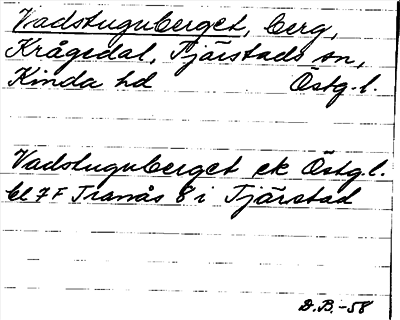 Vadstuguberget, berg,
Krågedal, Tjärstads sn,
Kinda hd Östg.l.
Vadstuguberget ek Östg.l.
bl 7 F Tranås 8 i Tjärstad
D.B.-58